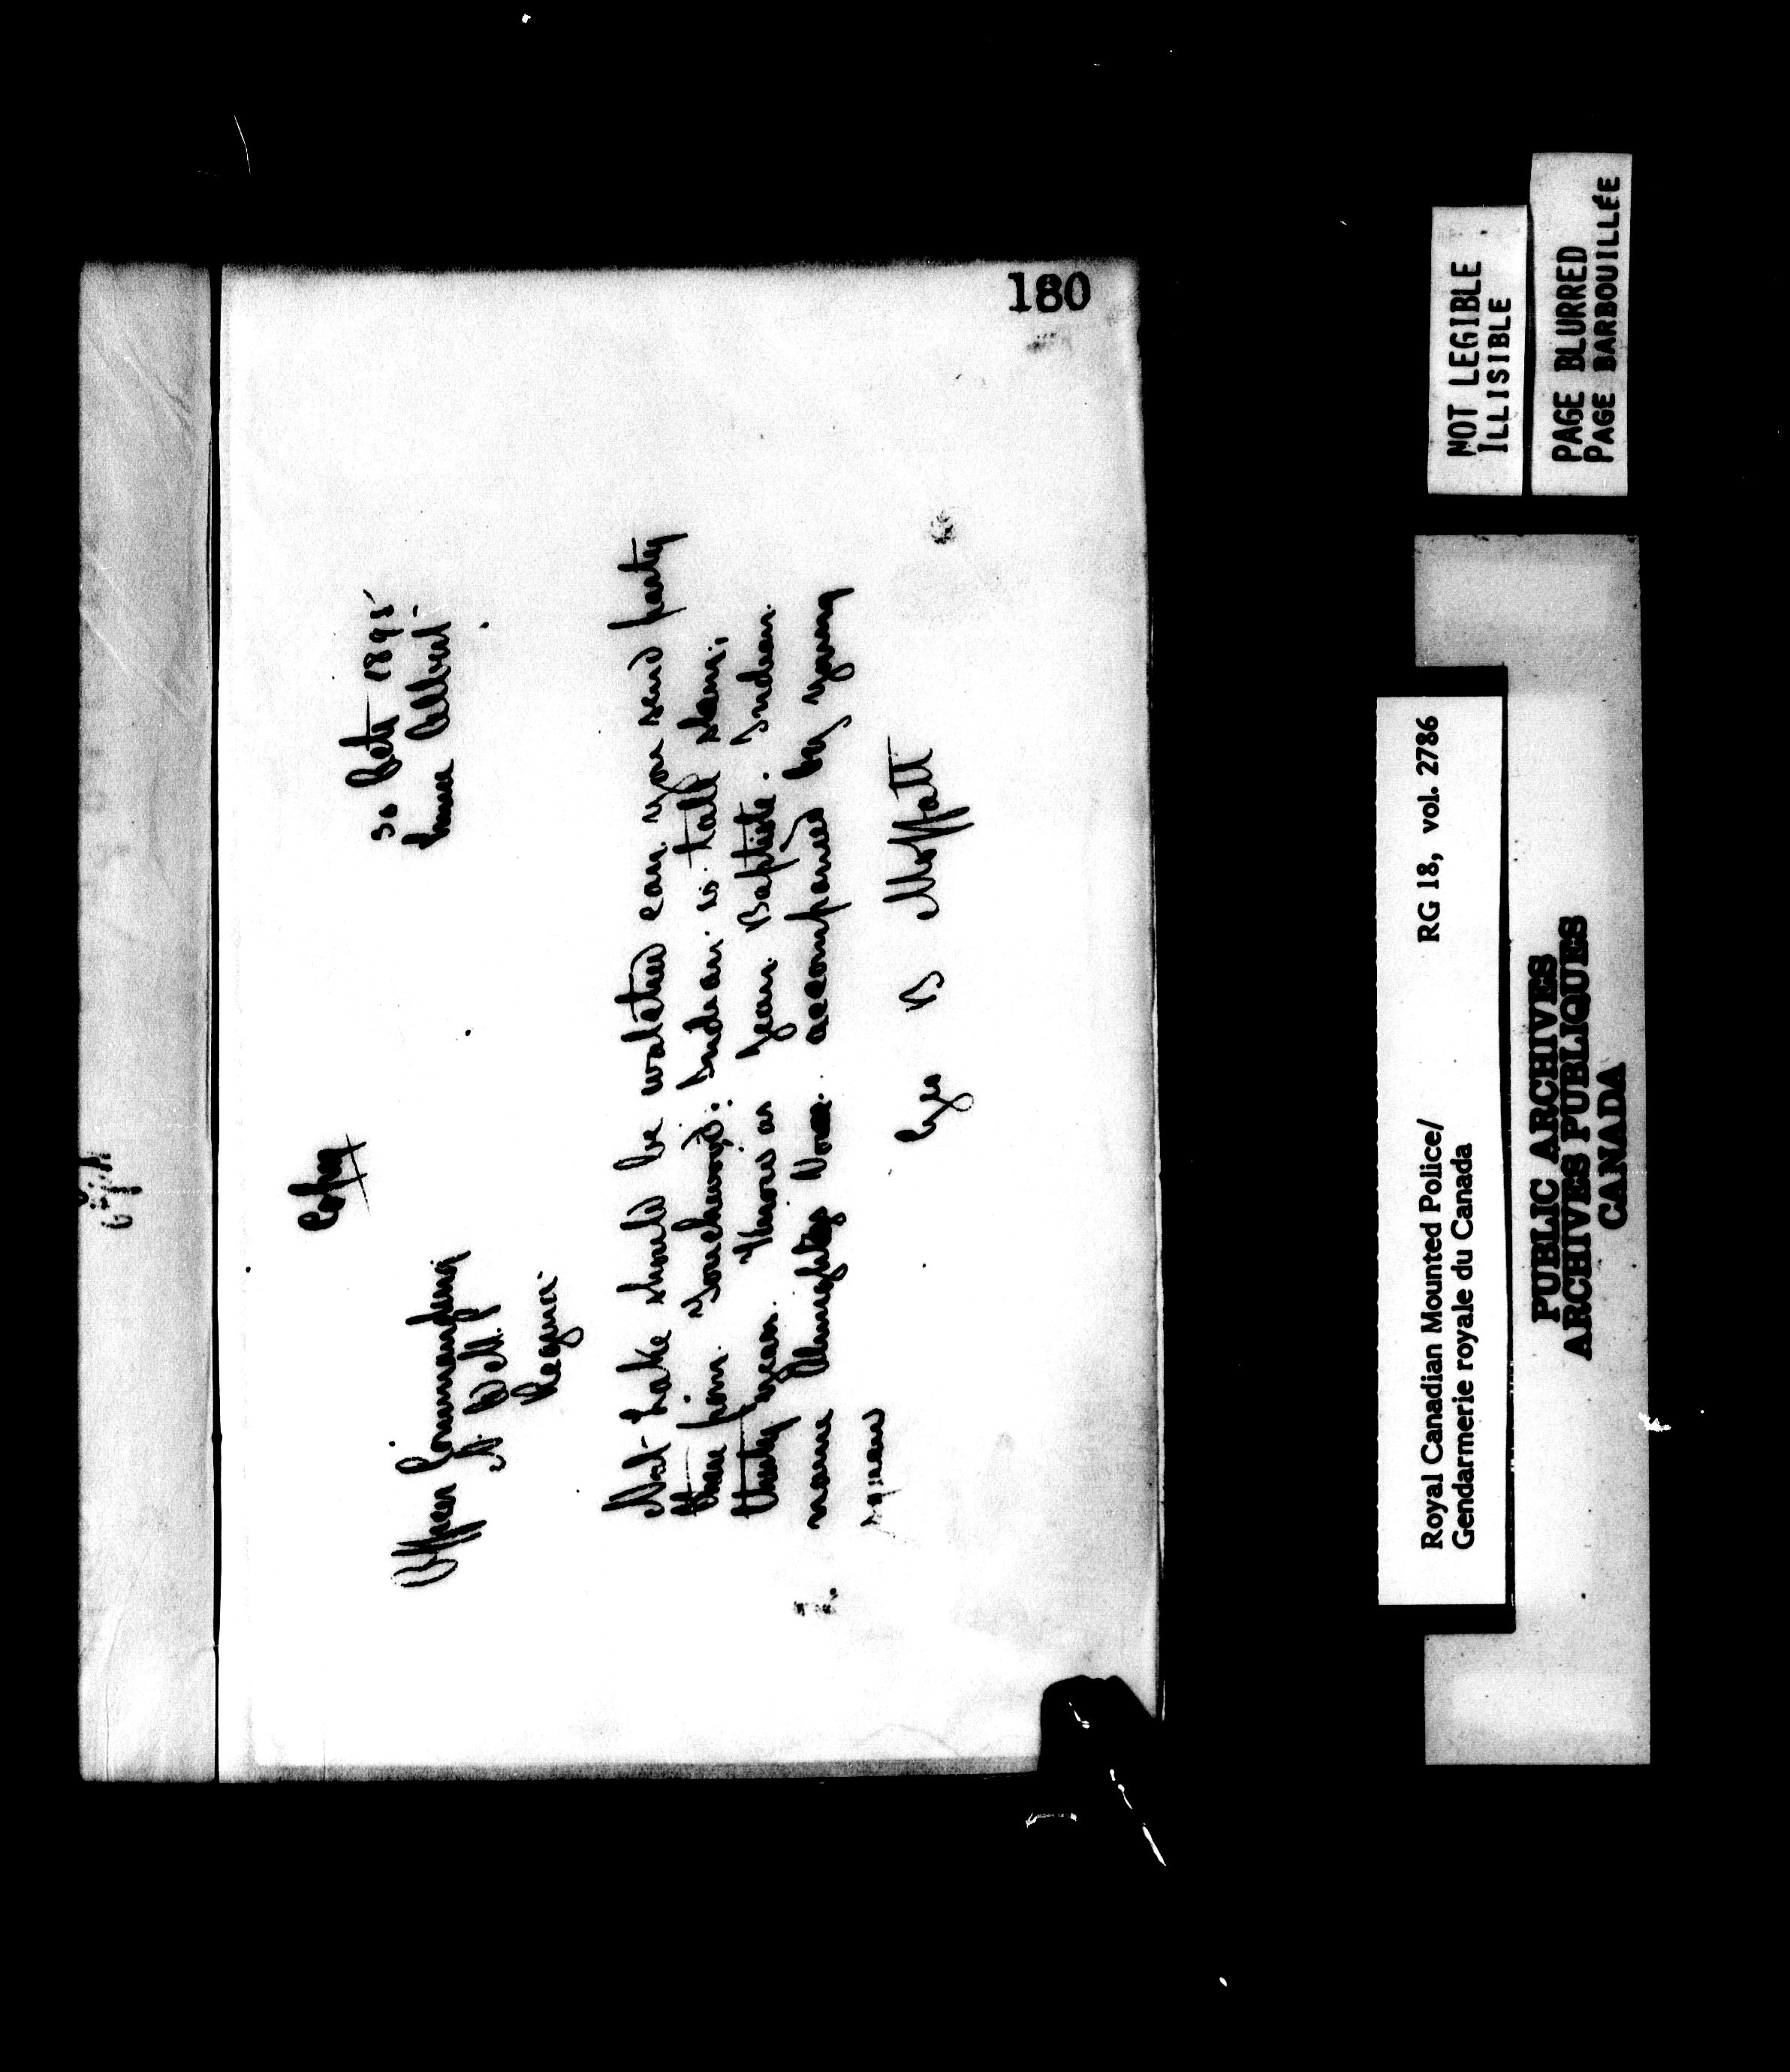 180
Copy
30 Octr 1895
Prince Albert
Officer Commanding
N.W.M.P
Regina
Nut Lake should be watched can you send party
there from Touchwood. Indian is tall slim,
thirty years. Known as Jean Baptiste. Indian
name Almighty Voice. accompanied by young
squaw
Geo B Moffatt
NOT LEGIBLE
ILLISIBLE
PAGE BLURRED
PAGE BARBOUILLÉE
Royal Canadian Mounted Police/
Gendarmerie royale du Canada
RG 18, vol. 2786
PUBLIC ARCHIVES
ARCHIVES PUBLIQUES
CANADA